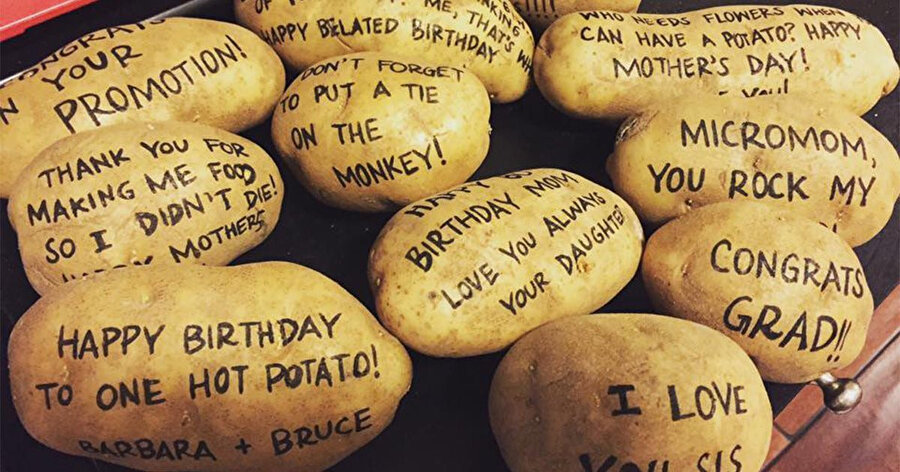 CONGRATS
N YOUR
PROMOTION!
ME, THAT'S
HAPPY BELATED BIRTHDAY
WHO NEEDS FLOWERS WHEN
CAN HAVE A POTATO? HAPPY
MOTHER'S DAY!
YOU!
DON'T FORGET
TO PUT A TIE
ON THE
MONKEY!
THANK YOU FOR
MAKING ME FOOD
SO I DIDN'T DIE!
HAPPY MOTHERS
MICROMOM,
YOU ROCK MY
BIRTHDAY MOM,
LOVE YOU ALWAYS
YOUR DAUGHTER
CONGRATS
GRAD!!
HAPPY BIRTHDAY
TO ONE HOT POTATO!
BARBARA + BRUCE
I LOVE
YOU SIS